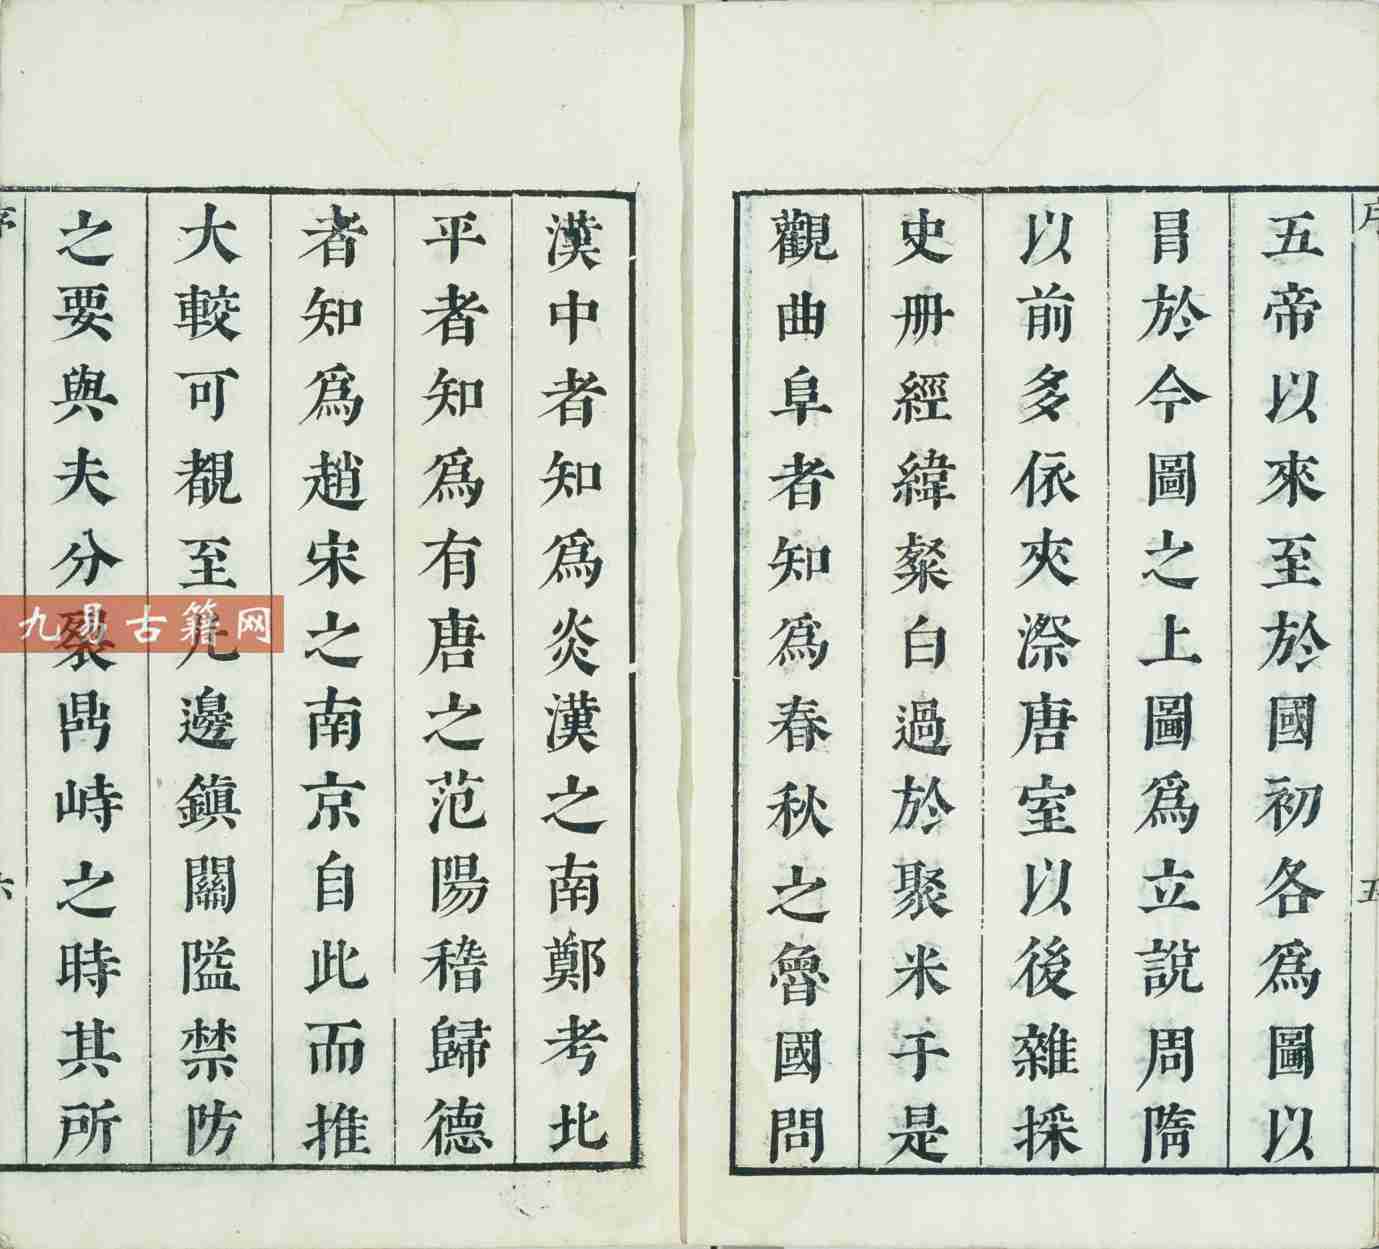 五帝以來至於國初各爲圖以
冒於今圖之上圖爲立說周隋
以前多依夾漈唐室以後雜採
史冊經緯粲白過於聚米于是
觀曲阜者知爲春秋之魯國問
漢中者知爲炎漢之南鄭考北
平者知爲有唐之范陽稽歸德
者知爲趙宋之南京自此而推
大較可覩至九邊鎭關隘禁防
之要與夫分裂鼎峙之時其所
九易古籍网